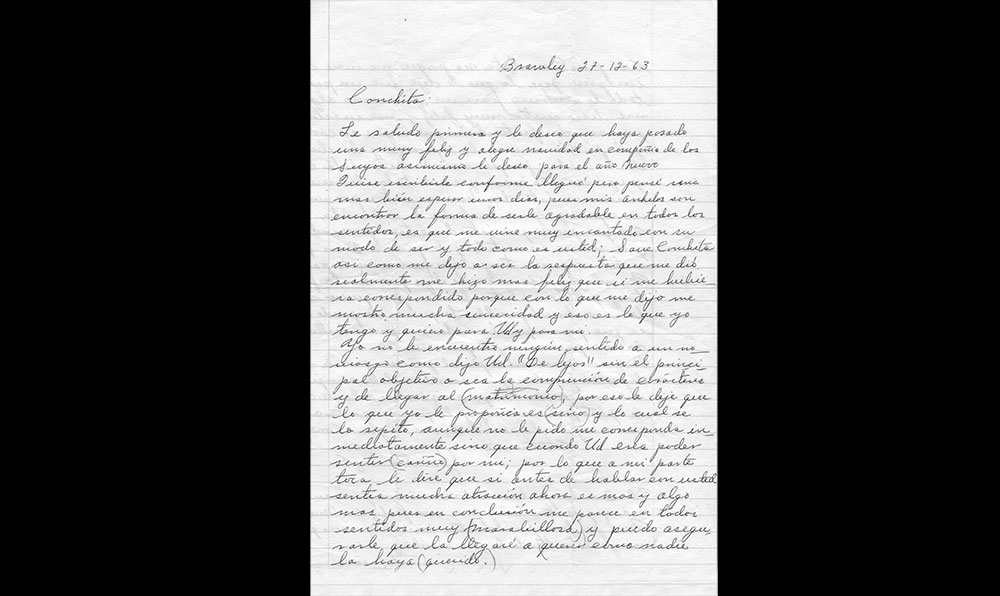 Brawley 27-12-63
Conchita.
Le saludo primera y le deseo que haya pasado
una muy feliz y alegre navidad en compañia de los
suyos asimismo le deseo para el año nuevo
Quise escribirle conforme llegué pero pensé
mas bién esperar unos dias, pues mis anhelos son
encontrar la forma de serle agradable en todos los
sentidos, es que me vine muy encantado con su
modo de ser y todo como es usted; Save Conchita
asi como me dijo o sea la respuesta que me dió
realmente me hizo mas feliz que si me hubie
ra correspondido porque con lo que me dijo me
mostro mucha sinceridad y eso es lo que yo
tengo y quiero para Ud y para mi.
Yo no le encuentro ningún sentido a un no_
viasgo como dijo Ud. "De lejos" sin el princi_
pal objetivo o sea la comprención de carácteres
y de llegar al (matrimonio), por eso le dije que
lo que yo le proponia es (serio) y lo cual se
lo repito, aunque no le pido me corresponda in_
mediatamente sino que cuando Ud crea poder
sentir (cariño) por mi; por lo que a mi parte
toca, le dire que si antes de hablar con usted
sentia mucha atracción ahora es mas y algo
mas pues en conclusión me parece en todos
sentidos muy (marabillosa) y puedo asegu_
rarle que la llegaré a (querer) como nadie
la haya (querido.)